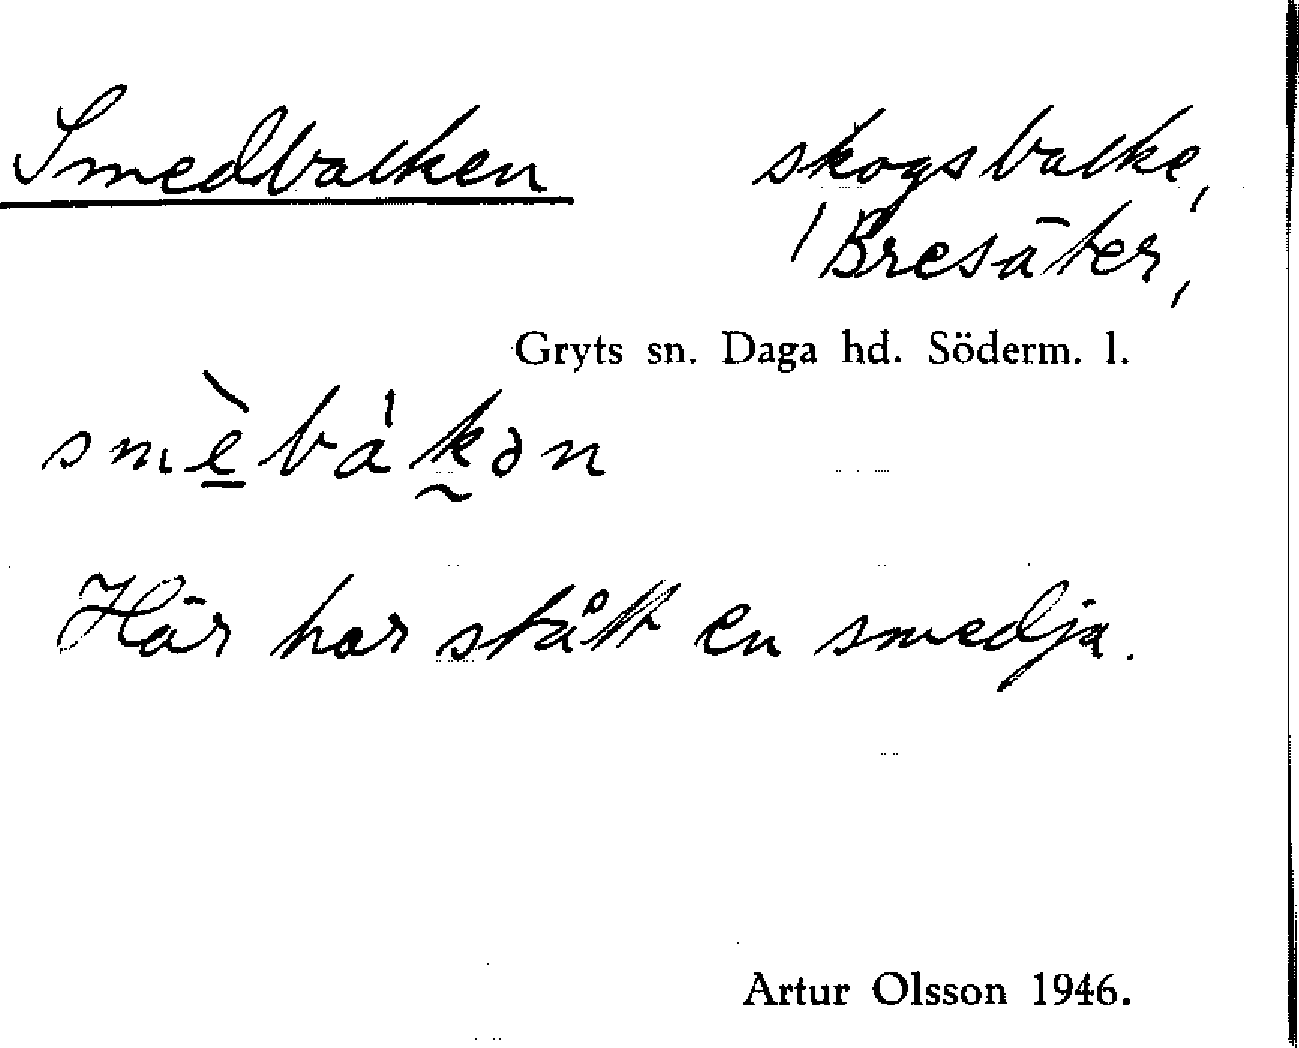 Smedbacken skogsbacke,
/Bresäter,
Gryts sn. Daga hd. Söderm. l.
smèbákən
Här har stått en smedja.
Artur Olsson 1946.